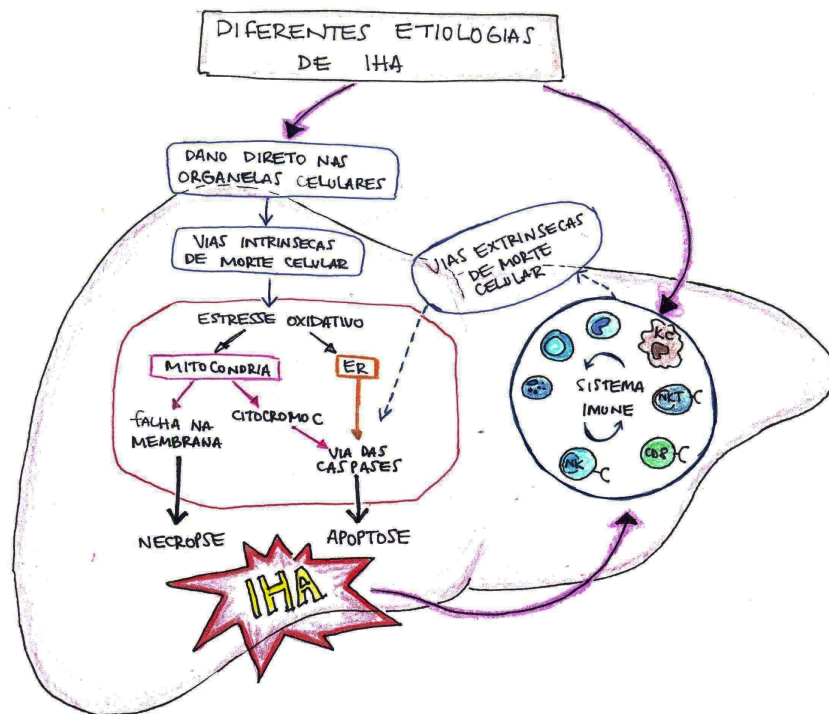 DIFERENTES ETIOLOGIAS
DE IHA
DANO DIRETO NAS
ORGANELAS CELULARES
VIAS INTRINSECAS
DE MORTE CELULAR
VIAS EXTRINSECAS
DE MORTE
CELULAR
ESTRESSE OXIDATIVO
MITOCONDRIA
ER
FALHA NA
MEMBRANA
CITOCROMO C
VIA DAS
CASPASES
NECROPSE
APOPTOSE
IHA
KC
SISTEMA
IMUNE
NKT
NK
CD8